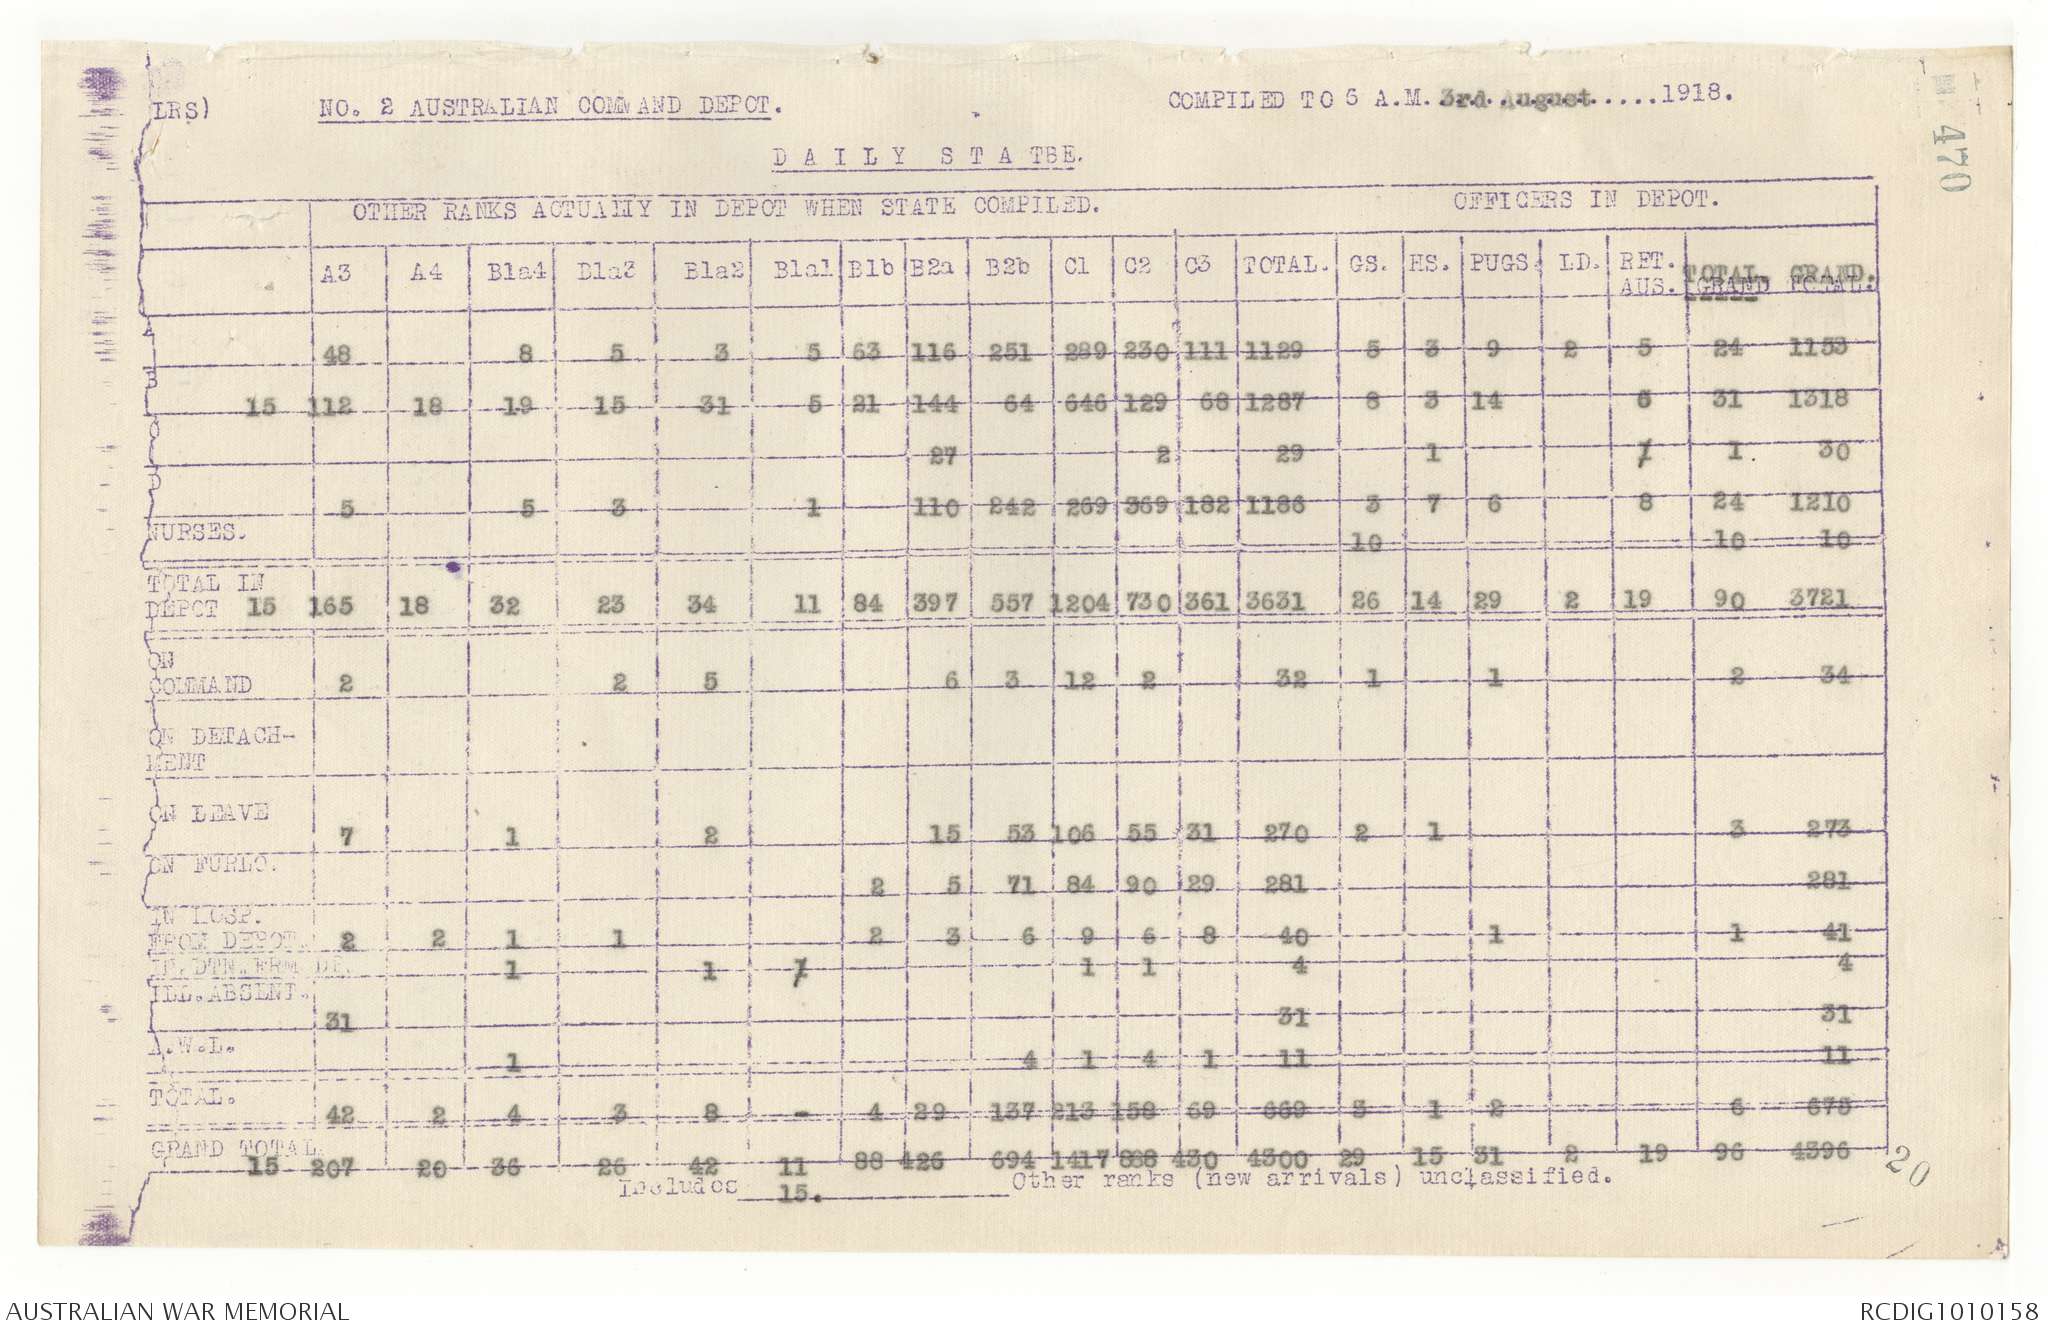 LRS) NO. 2 AUSTRALIAN COMMAND DEPOT. COMPILED TO 6 A.M. 3rd August.....1918.
470
D A I L Y S T A TBE.
OTHER RANKS ACTUALLY IN DEPOT WHEN STATE COMPILED. OFFICERS IN DEPOT.
A3 A4 B1a4 B1a3 B1a2 B1a1 B1b B2a B2b C1 C2 C3 TOTAL. GS. HS. PUGS. I.D. RET. AUS. TOTAL GRAND.
GRAND TOTAL.
A
48 8 5 3 5 63 116 251 289 230 111 1129 5 3 9 2 5 24 1153
B
15 112 18 19 15 31 5 21 144 64 646 129 68 1287 8 3 14 6 31 1318
C
27 2 29 1 1 30
D
5 5 3 1 110 242 269 369 182 1186 3 7 6 8 24 1210
NURSES.
10 10 10
TOTAL IN
DEPOT 15 165 18 32 23 34 11 84 397 557 1204 730 361 3631 26 14 29 2 19 90 3721
ON
COMMAND 2 2 5 6 3 12 2 32 1 1 2 34
ON DETACH-
MENT
ON LEAVE
7 1 2 15 53 106 55 31 270 2 1 3 273
ON FURLO.
2 5 71 84 90 29 281 281
IN HOSP.
FROM DEPOT. 2 2 1 1 2 3 6 9 6 8 40 1 1 41
IN DTN.FRM DP. 1 1 1 1 1 4 4
ILL.ABSENT.
31 31 31
A.W.L.
1 4 1 4 1 11 11
TOTAL.
42 2 4 3 8 - 4 29 137 213 158 69 669 3 1 2 6 675
GRAND TOTAL.
15 207 20 36 26 42 11 88 426 694 1417 888 430 4300 29 15 31 2 19 96 4396
20
Includes 15. Other ranks (new arrivals) unclassified.
AUSTRALIAN WAR MEMORIAL RCDIG1010158